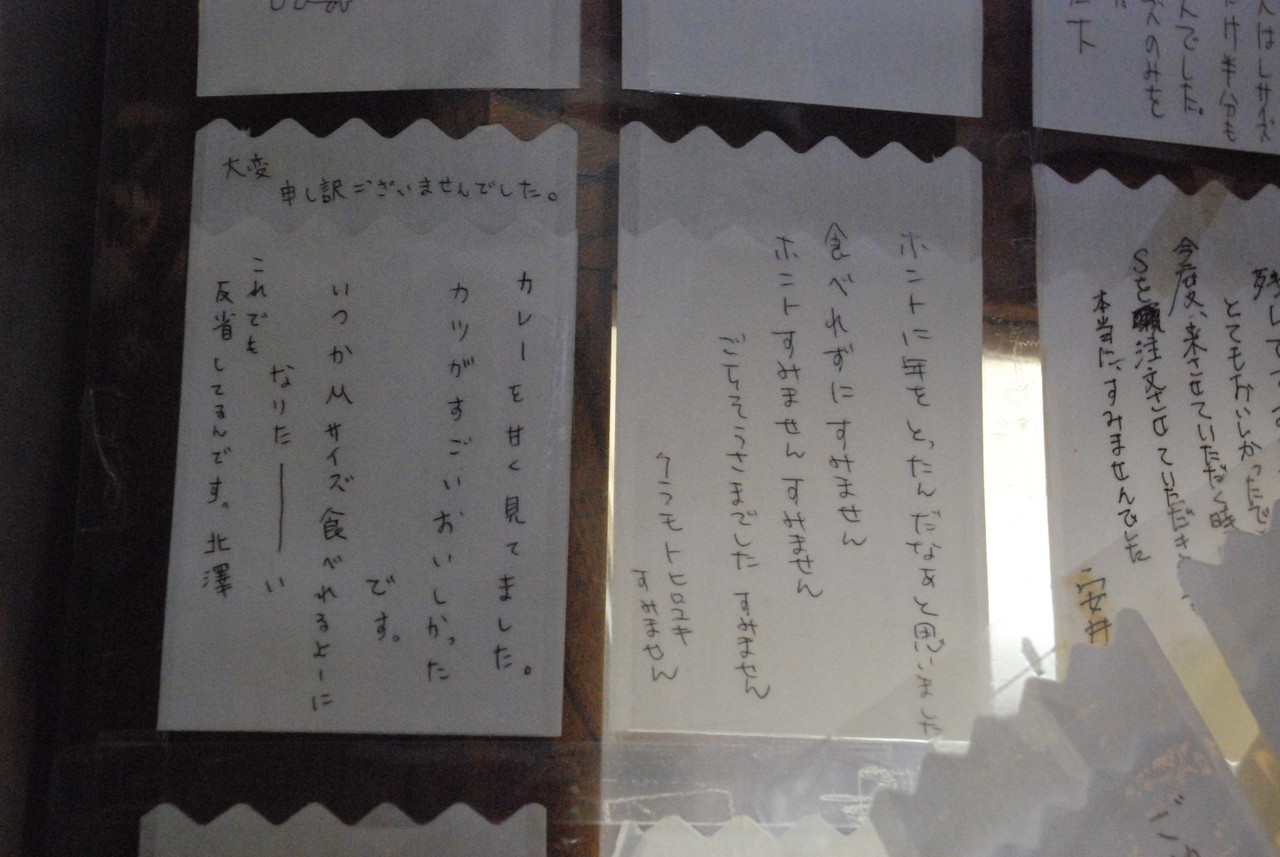 大変
申し訳ございませんでした。
カレーを甘く見てました。
カツがすごいおいしかった
です。
いつかMサイズ食べれるよーに
なりたーい
これでも
反省してるんです。北澤
ホントに年をとったんだなぁと思いました
食べれずにすみません
ホントすみませんすみません
ごちそうさまでした すみません
クラモトヒロユキ
すみません
とてもおいしかったで
今度、来させていただく時
Sを注文させていただき
本当に、すみませんでした
安井
んはLサイズ
け半分も
んでした。
スのみを